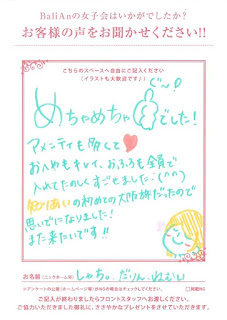 BaliAnの女子会はいかがでしたか?
お客様の声をお聞かせください!!
こちらのスペースへ自由にご記入ください
(イラストも大歓迎です♪)
ぐ〜!
めちゃめちゃ でした!
アメニティも多くて
おへやもキレイ、おふろも全員で
入れてたのしくすごせました(^^)
の初めての大阪旅だったので
思いでになりました!
また来たいです!!
お名前(ニックネーム可) しゃち。だりん。ねむい
※アンケートの公開(ホームページ等)がNGの場合はチェックしてください。 □掲載NG
ご記入が終わりましたらフロントスタッフへお渡しください。
ご協力いただきました御礼に、ささやかなプレゼントをさせていただきます。